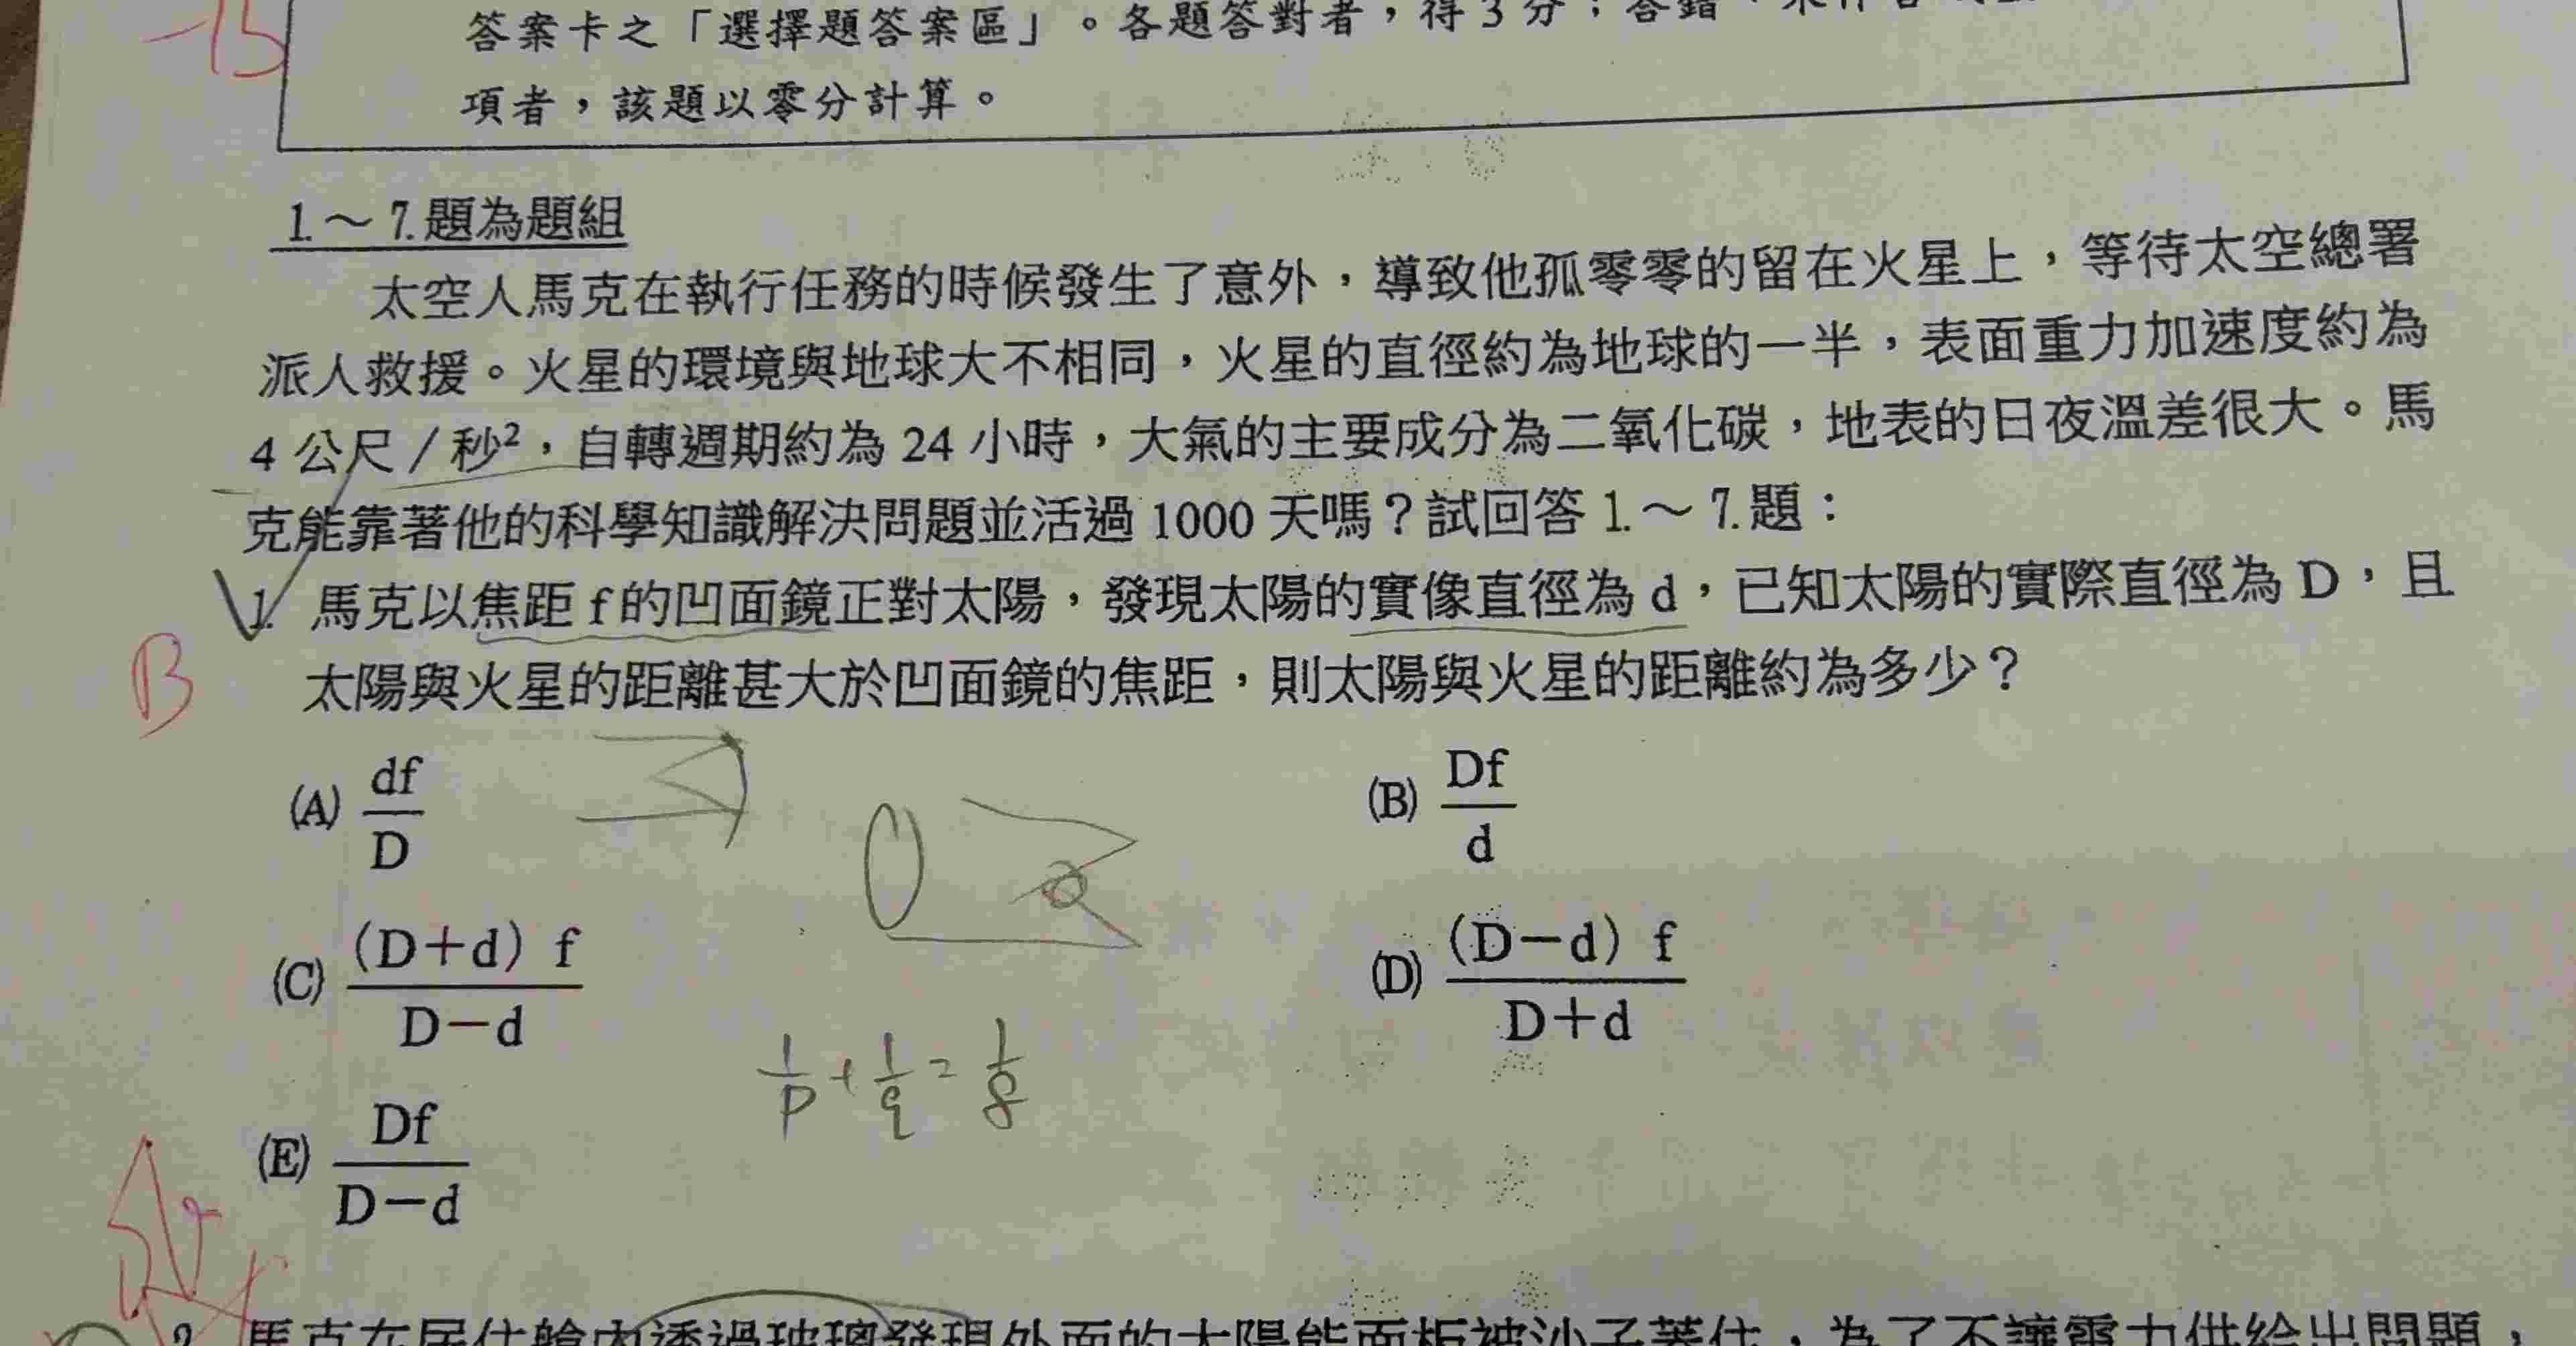 -15
答案卡之「選擇題答案區」。各題答對者，得3分；答錯、未作答
項者，該題以零分計算。
1.～7.題為題組
太空人馬克在執行任務的時候發生了意外，導致他孤零零的留在火星上，等待太空總署
派人救援。火星的環境與地球大不相同，火星的直徑約為地球的一半，表面重力加速度約為
4公尺/秒²，自轉週期約為24小時，大氣的主要成分為二氧化碳，地表的日夜溫差很大。馬
克能靠著他的科學知識解決問題並活過1000天嗎？試回答1.～7.題：
1. 馬克以焦距f的凹面鏡正對太陽，發現太陽的實像直徑為d，已知太陽的實際直徑為D，且
B
太陽與火星的距離甚大於凹面鏡的焦距，則太陽與火星的距離約為多少？
(A) df/D
(B) Df/d
(C) (D+d) f/D-d
(D) (D-d) f/D+d
1/p+1/q=1/f
(E) Df/D-d
2. 馬克在居住艙內透過玻璃發現外面的太陽能面板被沙子蓋住，為了不讓電力供給出問題，